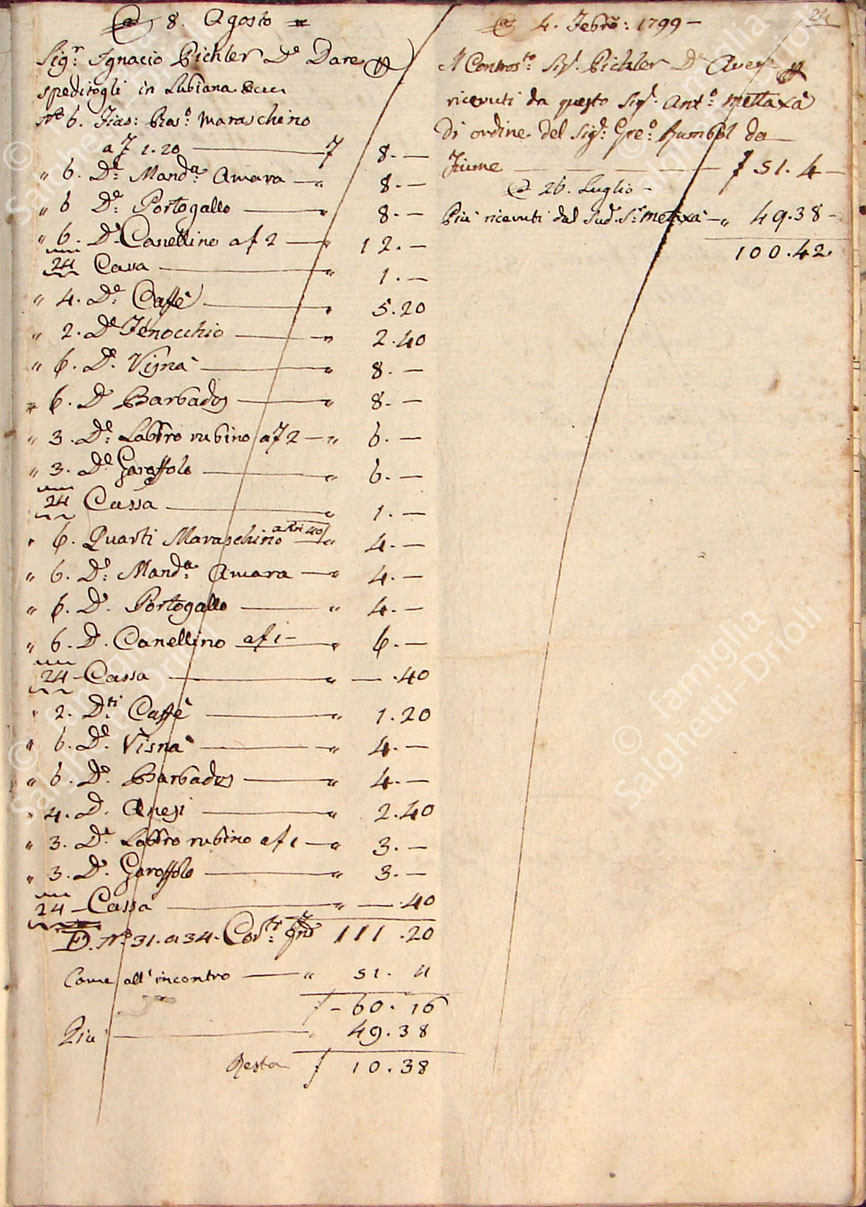 8. Agosto
Sigr. Ignacio Pichler De Dare
speditogli in Lubiana
No 6. Fias: Ros: Maraschino
a f 1.20 — f 8. —
" 6. De: Manda: Amara — " 8. —
" 6 De: Portogallo — " 8. —
" 6. De: Canellino a f 2 — " 12. —
24 Casa — " 1. —
" 4. De: Caffè — " 5.20
" 2. De Fenocchio — " 2.40
" 6. De: Visnà — " 8. —
" 6. De Barbados — " 8. —
" 3. De: Labbro rubino a f 2 — " 6. —
" 3. De Garoffolo — " 6. —
24 Cassa — " 1. —
" 6. Quarti Maraschino a Xni 40 " 4. —
" 6. De: Manda: Amara — " 4. —
" 6. De: Portogallo — " 4. —
" 6. De. Canellino a f 1 — " 6. —
24 — Cassa — " — .40
" 2. Dti: Caffè — " 1.20
" 6. De: Visnà — " 4. —
" 6. De: Barbados — " 4. —
" 4. De. Anesi — " 2.40
" 3. De: Labbro rubino a f 1 — " 3. —
" 3. De: Garoffolo — " 3. —
24 — Cassa — " — .40
No 31. a 34. 111.20
Come all'incontro — " 51. 4
f — 60. 16
Più — 49.38
Resta f 10.38
24
4. Febro: 1799 —
Il Contros:to Sigr. Pichler De Aver
ricevuti da questo Sigr. Anto. Metaxà
di ordine del Sigr. Grego: da
Fiume — f 51. 4 —
26. Luglio —
Più ricevuti dal Sud: Sr. Metaxà — " 49.38 —
100.42
© famiglia
Salghetti Drioli
© famiglia
Salghetti Drioli
© famiglia
Salghetti Drioli
© famiglia
Salghetti Drioli